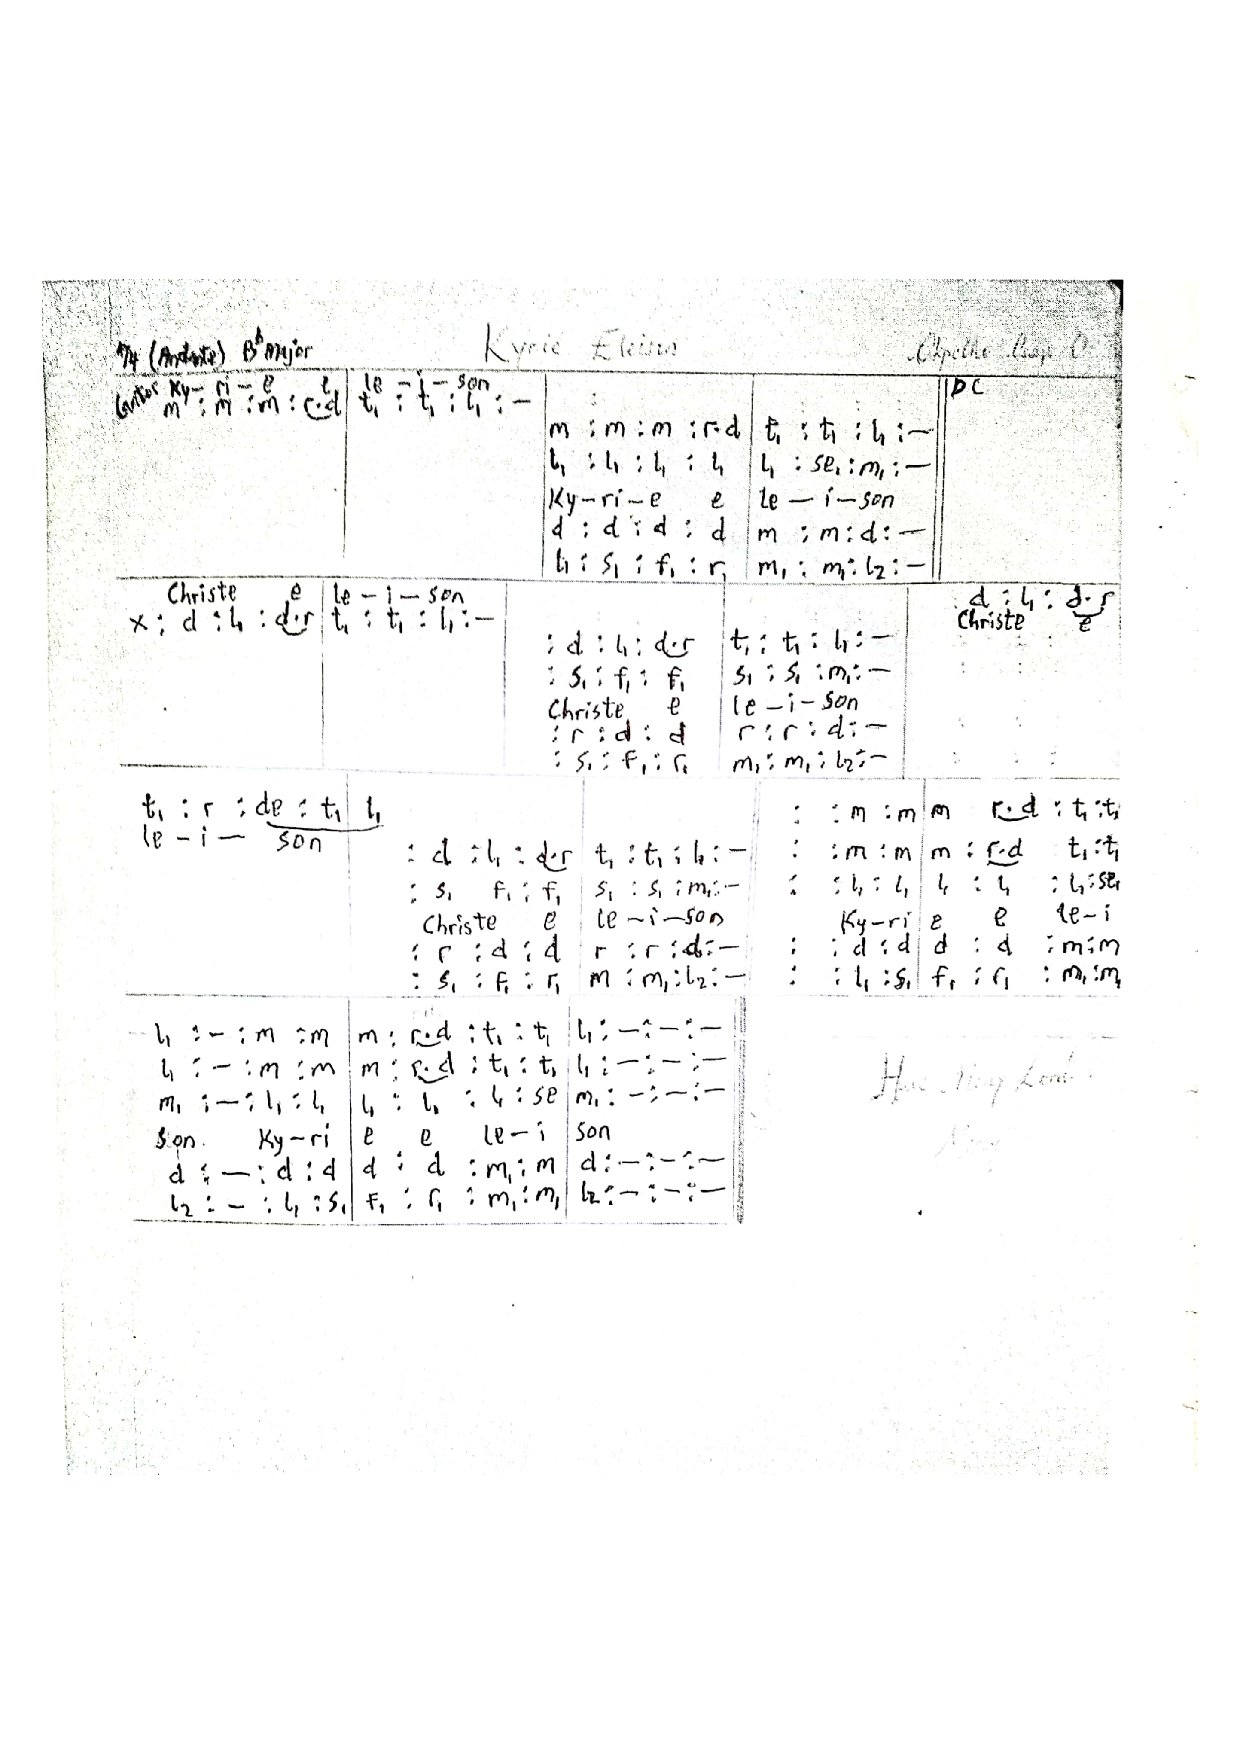 4/4 (Andante) Bb Major Kyrie Eleison
Cantor Ky-ri-e e le-i-son DC
m : m : m : r.d t₁ : t₁ : l₁ : —
m : m : m : r.d t₁ : t₁ : l₁ : —
l₁ : l₁ : l₁ : l₁ l₁ : se₁ : m₁ : —
Ky-ri-e e le-i-son
d : d : d : d m : m : d : —
l₁ : s₁ : f₁ : r₁ m₁ : m₁ : l₂ : —
Christe e le-i-son
x : d : l₁ : d.r t₁ : t₁ : l₁ : —
d : l₁ : d.r
Christe e
: d : l₁ : d.r t₁ : t₁ : l₁ : —
: s₁ : f₁ : f₁ s₁ : s₁ : m₁ : —
Christe e le-i-son
: r : d : d r : r : d : —
: s₁ : f₁ : r₁ m₁ : m₁ : l₂ : —
t₁ : r : de : t₁ l₁
le-i- son
: d : l₁ : d.r t₁ : t₁ : l₁ : —
: s₁ f₁ : f₁ s₁ : s₁ : m₁ : —
Christe e le-i-son
: r : d : d r : r : d : —
: s₁ : f₁ : r₁ m : m₁ : l₂ : —
: : m : m m r.d : t₁ : t₁
: : m : m m : r.d t₁ : t₁
: : l₁ : l₁ l₁ : l₁ : l₁ : se₁
Ky-ri e e le-i
: : d : d d : d : m : m
: : l₁ : s₁ f₁ : r₁ : m₁ : m₁
l₁ : — : m : m m : r.d : t₁ : t₁ l₁ : — : — : —
l₁ : — : m : m m : r.d : t₁ : t₁ l₁ : — : — : —
m₁ : — : l₁ : l₁ l₁ : l₁ : l₁ : se m₁ : — : — : —
son. Ky-ri e e le-i son
d : — : d : d d : d : m₁ : m d : — : — : —
l₂ : — : l₁ : s₁ f₁ : r₁ : m₁ : m₁ l₂ : — : — : —